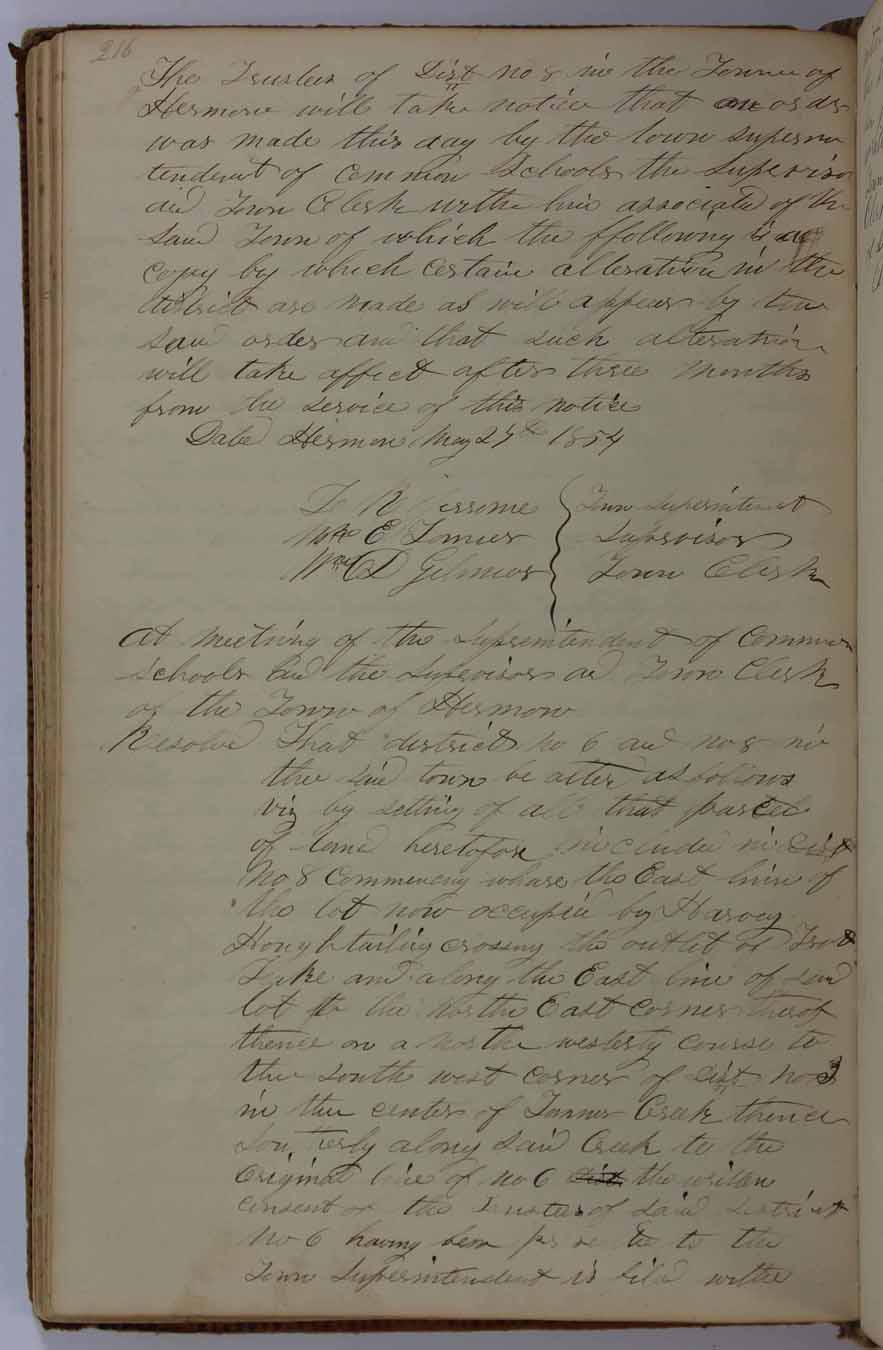 216
The Trustees of Dist no 8 in the Towne of
Hermon will take notice that an order
was made this day by the town superin
tendent of common Schools the Supervisor
and Town Clerk withe him associated of the
said Town of which the ffollowing is a
copy by which certain alteration in the
district are made as will appear by the
said order and that such alteration
will take affect after three months
from the service of this notice
Date Hermon May 27th 1854
Town Superintendent
Wm E Tanner Supervisor
Wm D Gilmor Town Clerk
at meeting of the Superintendent of Common
schools and the Supervisor and Town Clerk
of the Town of Hermon
Resolved That district no 6 and no 8 in
the said town be alterd as follows
viz by setting of all that parcel
of land heretofore included in Dist
No 8 Commencing whare the East line of
the lot now occupied by Harvey
crossing the outlet of Trout
Lake and along the East line of said
lot to the North East corner therof
thence on a North westerly course to
the south west corner of Dist No 3
in the center of Tanner Creek thence
Southerly along said Creek to the
Original line of no 6 the writen
consent of the Trustees of said District
No 6 having been to the
Town Superintendent is fild withe